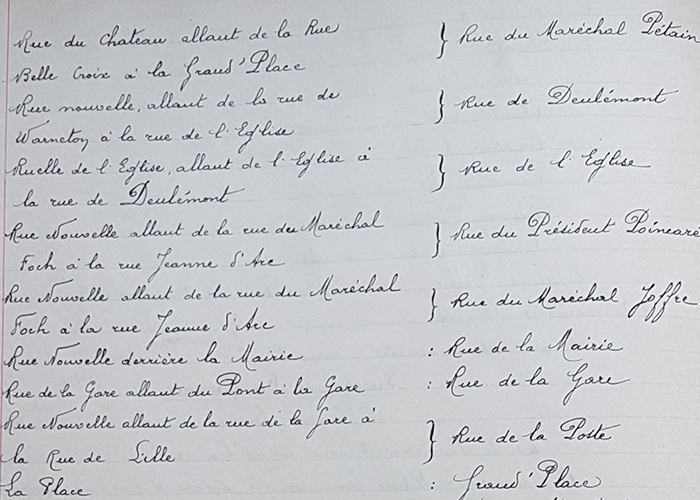 Rue du Chateau allant de la Rue } Rue du Maréchal Pétain
Belle Croix à la Grand'Place
Rue nouvelle, allant de la rue de } Rue de Deulémont
Warneton à la rue de l'Eglise
Ruelle de l'Eglise, allant de l'Eglise à } Rue de l'Eglise
la rue de Deulémont
Rue Nouvelle allant de la rue du Maréchal } Rue du Président Poincaré
Foch à la rue Jeanne d'Arc
Rue Nouvelle allant de la rue du Maréchal } Rue du Maréchal Joffre
Foch à la rue Jeanne d'Arc
Rue Nouvelle derrière la Mairie : Rue de la Mairie
Rue de la Gare allant du Pont à la Gare : Rue de la Gare
Rue Nouvelle allant de la rue de la Gare à } Rue de la Poste
la Rue de Lille
La Place : Grand'Place